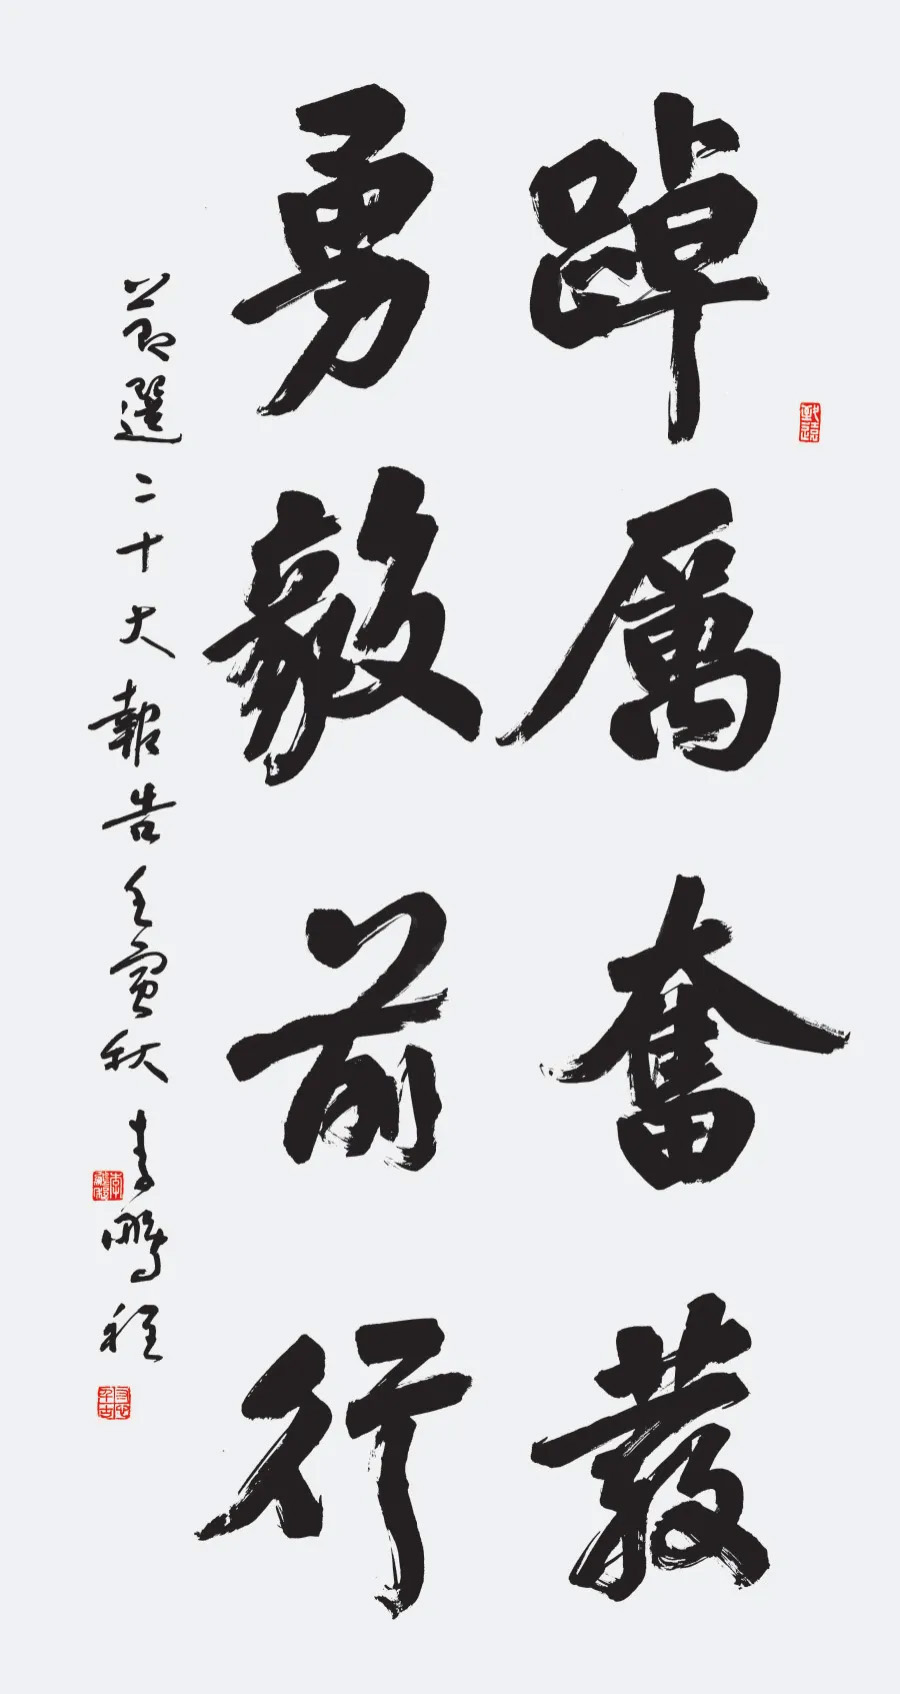 踔厲奮發
勇毅前行
節選二十大報告壬寅秋李鵬程